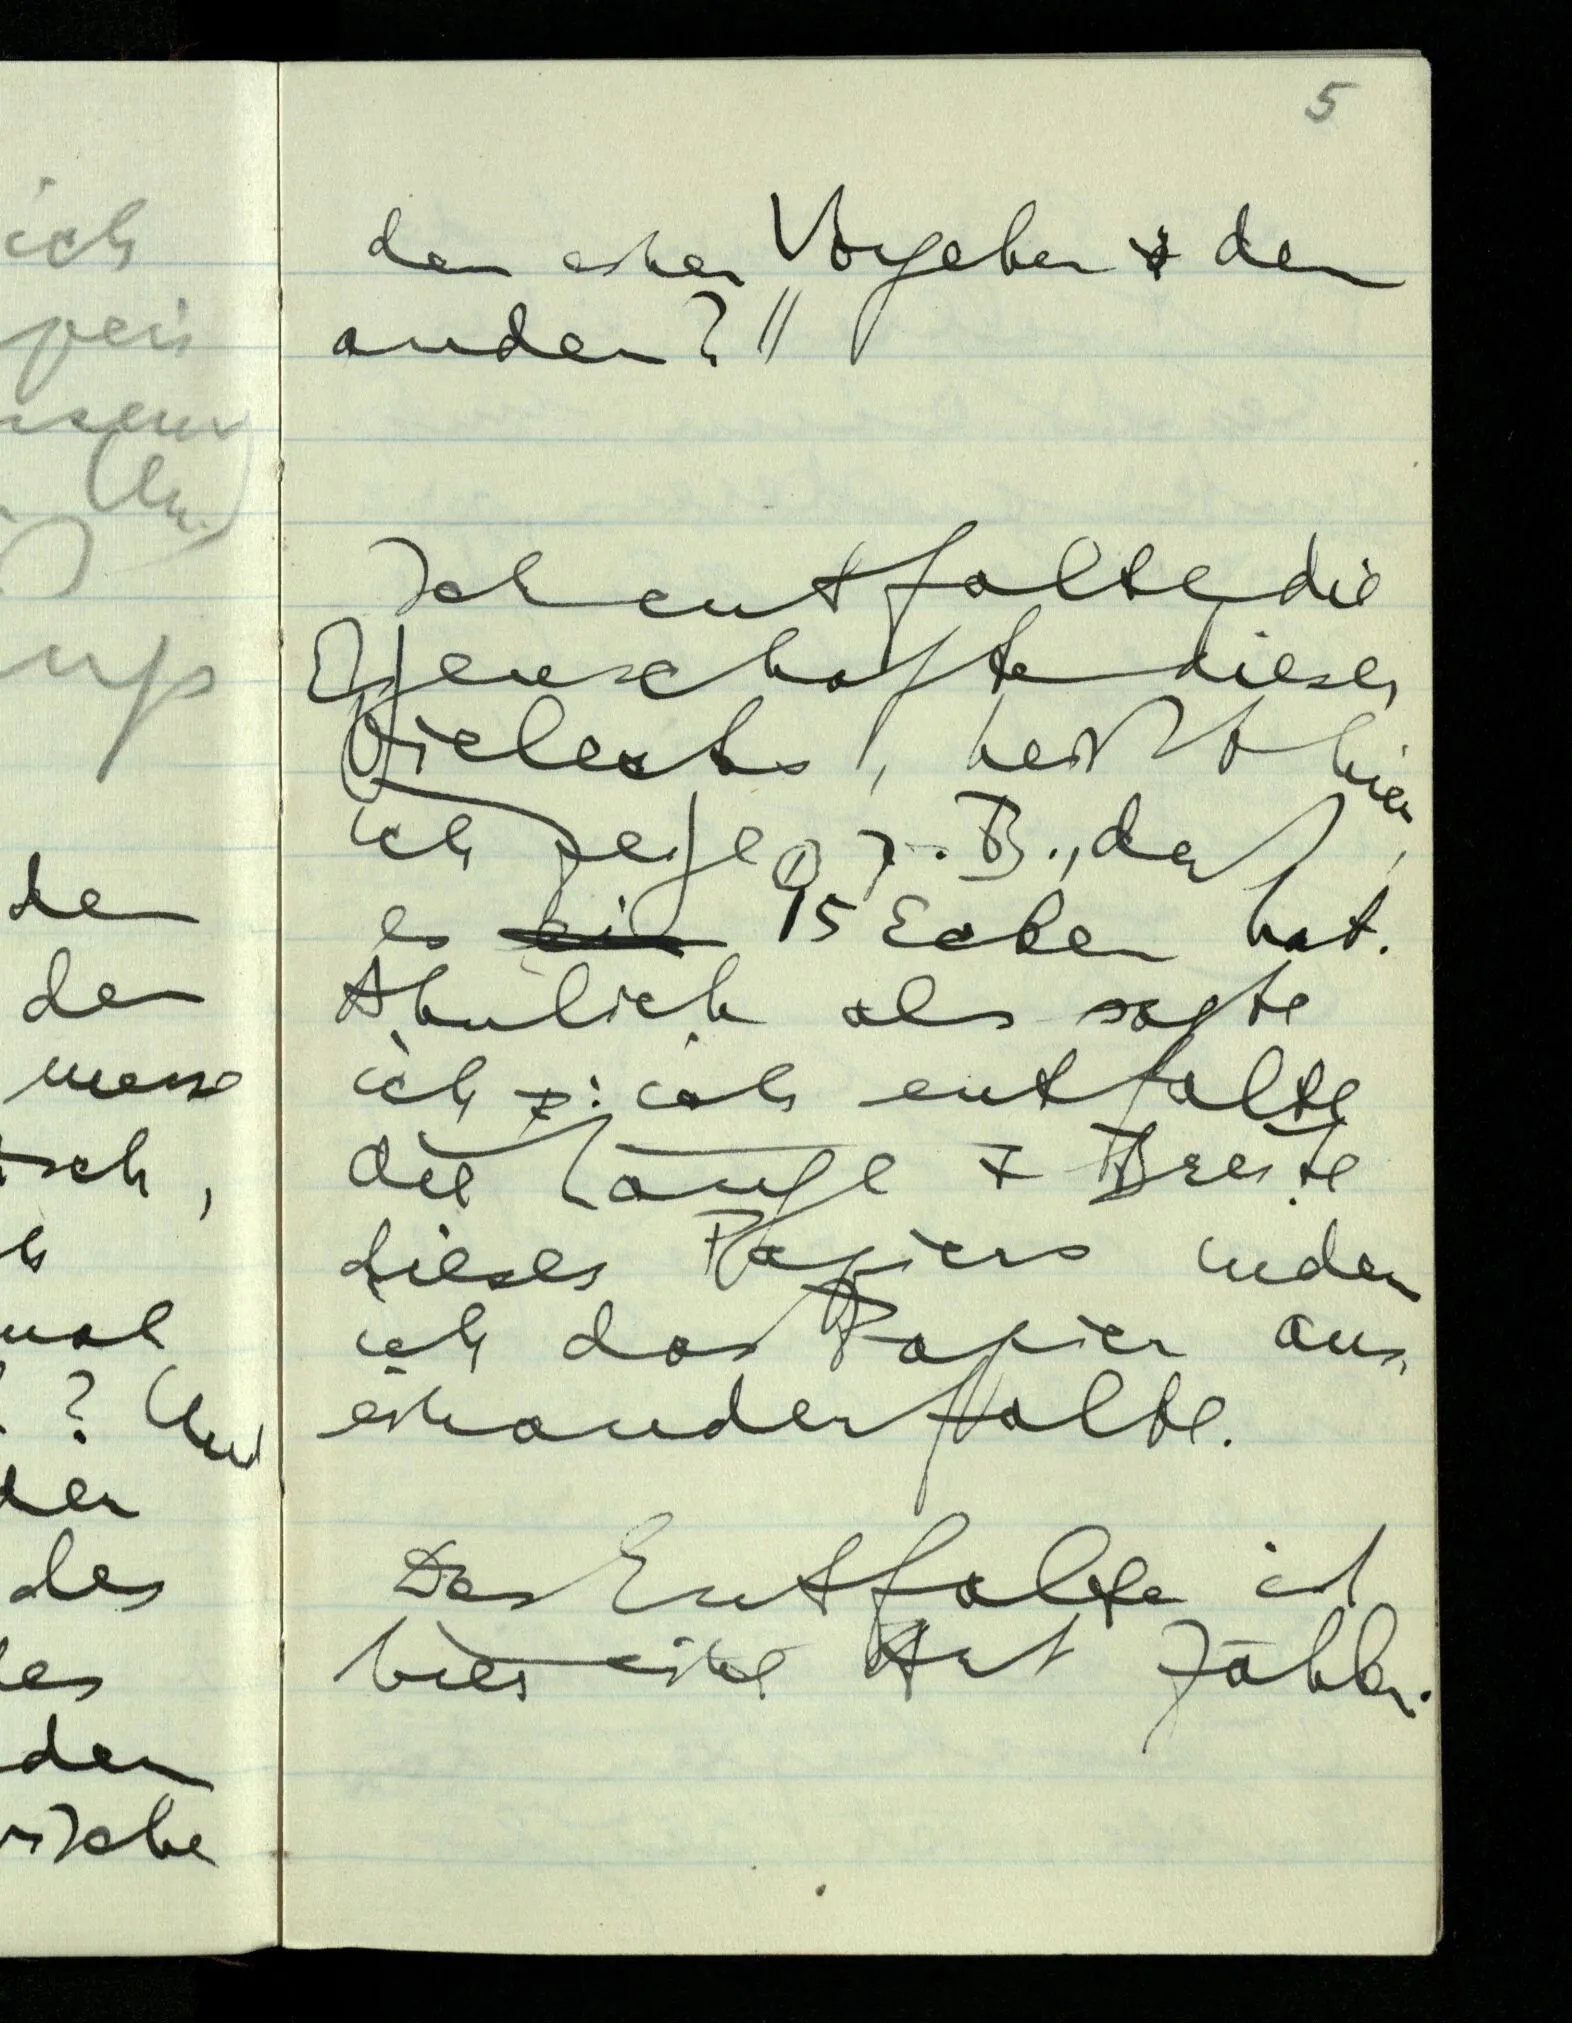 ich
den
den
messe
isch,
mal
? Und
der
des
des
den
5
den einen Vorgehen & den
anden? //
Ich entfalte die
Eigenschaften dieses
Vielecks, heißt hier,
ich zeige, z.B., daß
es ein 15 Ecken hat.
Ähnlich als sagte
ich : ich entfalte
die Länge & Breite
dieses Papiers indem
ich das Papier aus-
einanderfalte.
Das Entfalten ist
hier eine Art Zählen.